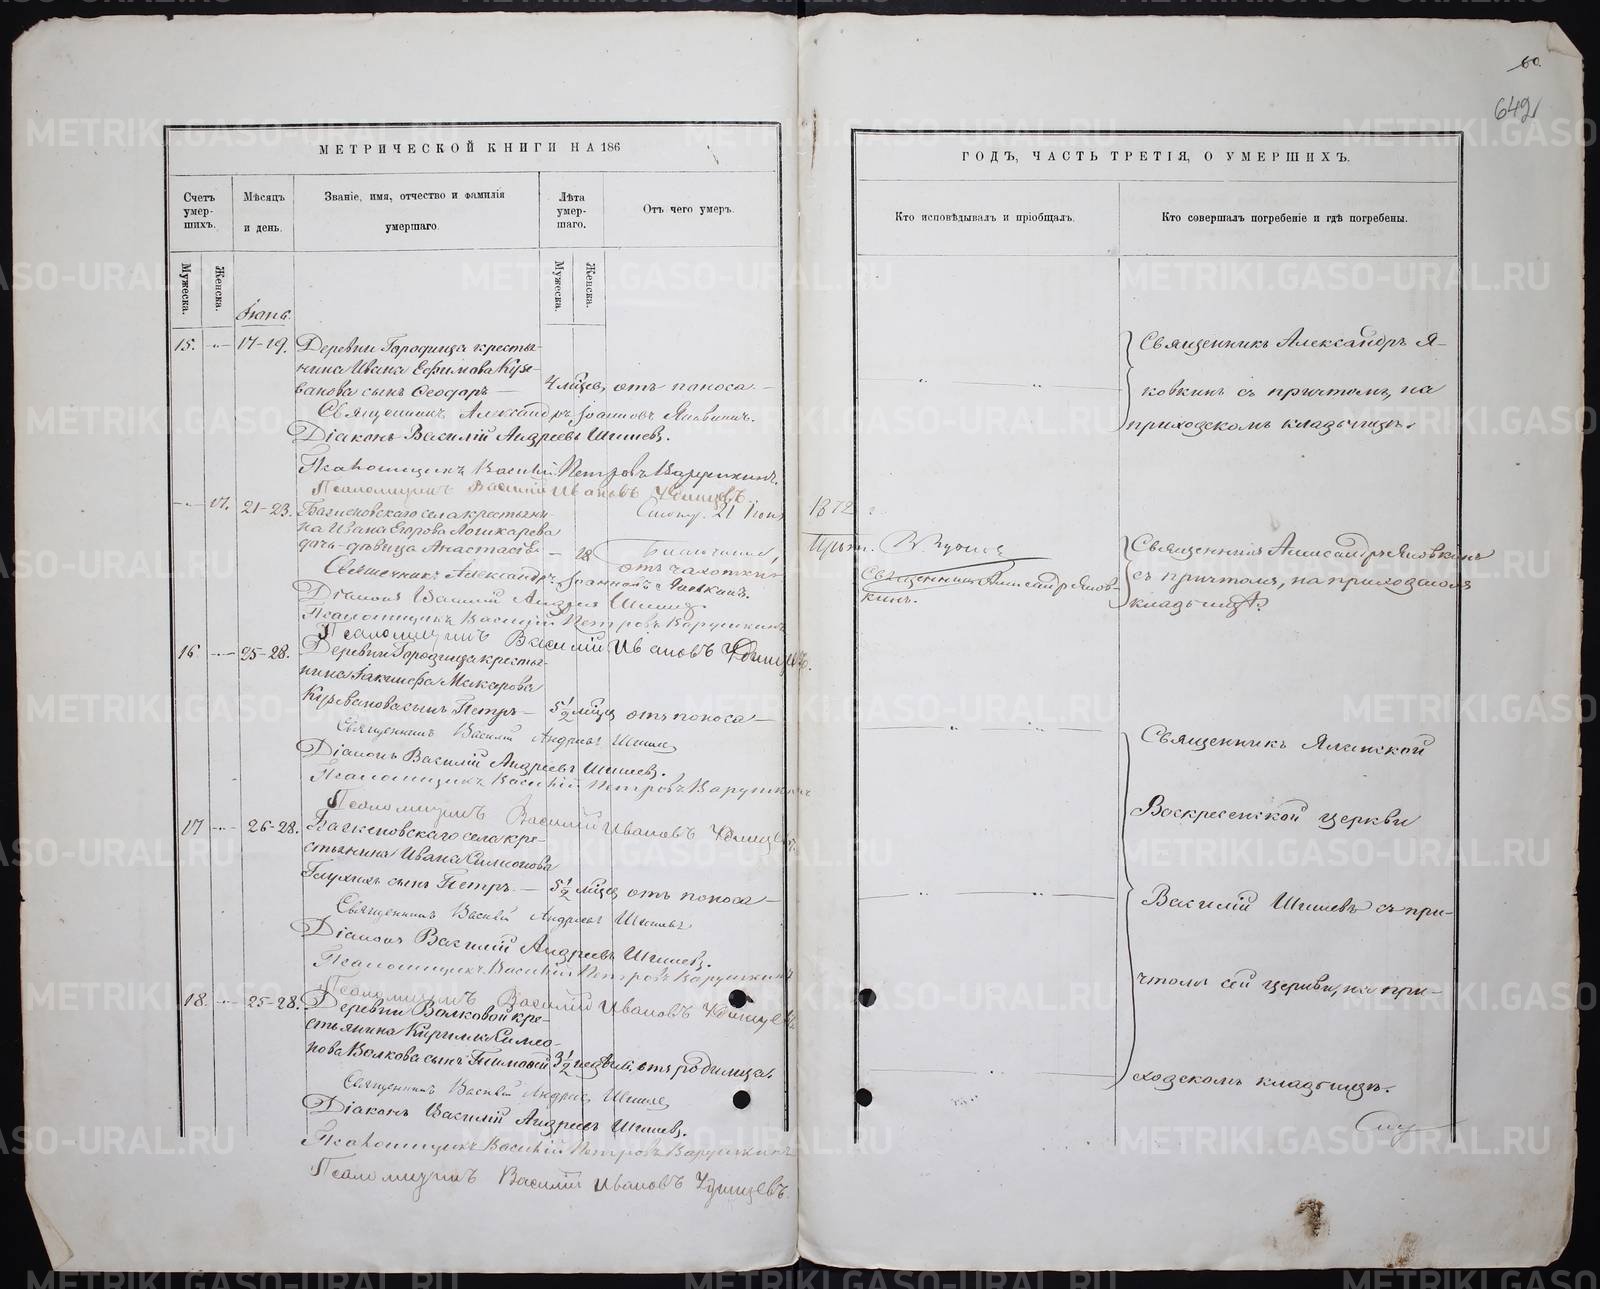 60.
649
МЕТРИЧЕСКОЙ КНИГИ НА 186
ГОДЪ, ЧАСТЬ ТРЕТІЯ, О УМЕРШИХЪ.
Счетъ умер- шихъ.
Мѣсяцъ и день.
Званіе, имя, отчество и фамилія умершаго.
Лѣта умер- шаго.
Отъ чего умеръ.
Кто исповѣдывалъ и пріобщалъ.
Кто совершалъ погребеніе и гдѣ погребены.
Мужеска.
Женска.
Мужеска.
Женска.
Іюнь.
15. 17-19. Деревни Городища крестья-
нина Ивана Ефимова Кузе-
ванова сынъ Ѳеодоръ —
4 мѣсец. отъ поноса —
Священникъ Александръ Я-
ковкинъ съ причтомъ, на
приходскомъ кладбищѣ.
Священникъ Александръ Іоанновъ Яковкинъ.
Діаконъ Василій Андреевъ Шишевъ.
Псаломщикъ Василій Петровъ Варушкинъ.
Псаломщикъ Василій Ивановъ Удинцевъ.
17. 21-23. села крестьяни-
на Ивана Егорова
дочь-дѣвица Анастасія — 18
отъ чахотки
21 Іюня 1872 г.
Священникъ Александръ Яков-
кинъ.
Священникъ Александръ Яковкинъ
съ причтомъ, на приходскомъ
кладбищѣ.
Священникъ Александръ Іоанновъ Яковкинъ.
Діаконъ Василій Андреевъ Шишевъ.
Псаломщикъ Василій Петровъ Варушкинъ
Псаломщикъ Василій Ивановъ Удинцевъ.
16 25-28. Деревни Городища крестья-
нина Макарова
Кузеванова сынъ Петръ — 5½ мѣсец отъ поноса —
Священникъ Василій Андреевъ Шишев
Діаконъ Василій Андреевъ Шишевъ.
Псаломщикъ Василій Петровъ Варушкинъ
Псаломщикъ Василій Ивановъ Удинцевъ
17 26-28. села кре-
стьянина Ивана Симеонова
Глухихъ сынъ Петръ — 5½ мѣсец отъ поноса —
Священникъ Василій Андреевъ Шишевъ
Діаконъ Василій Андреевъ Шишевъ.
Псаломщикъ Василій Петровъ Варушкинъ
Псаломщикъ Василій Ивановъ Удинцевъ
18. 25-28. Деревни Волковой кре-
стьянина Кирилла Симео-
нова Волкова сынъ Тимоѳей 3½ недѣл. отъ родимца.
Священникъ Василій Андреев Шишев
Діаконъ Василій Андреевъ Шишевъ.
Псаломщикъ Василій Петровъ Варушкинъ
Псаломщикъ Василій Ивановъ Удинцевъ.
Священникъ Ялунской
Воскресенской церкви
Василій Шишевъ съ при-
чтомъ сей церкви, на при-
ходскомъ кладбищѣ.
METRIKI.GASO-URAL.RU